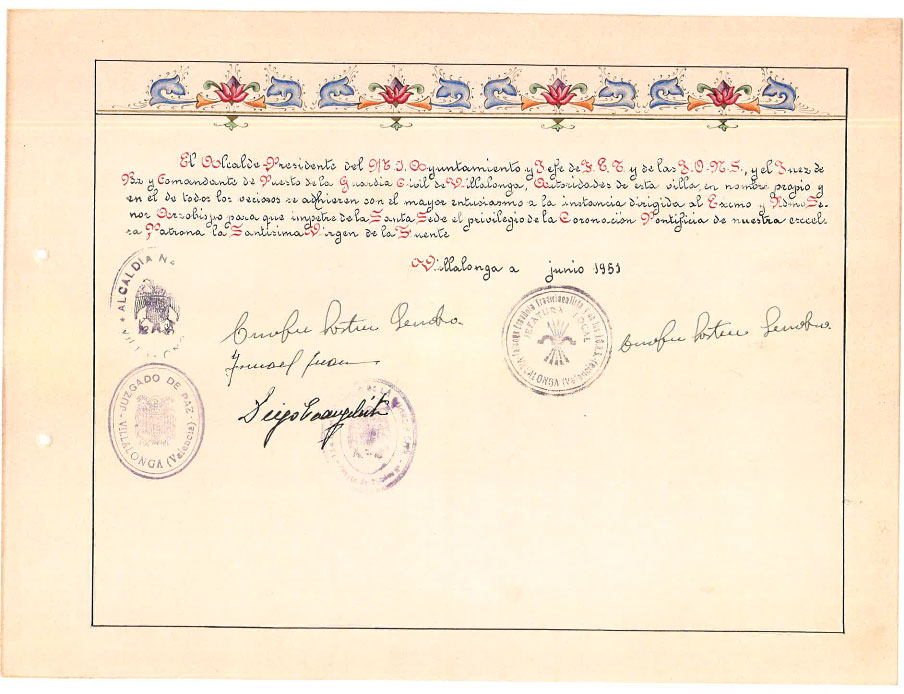 El Alcalde-Presidente del M.I. Ayuntamiento y Jefe de F.E.T. y de las J.O.N.S., y el Juez de
Paz y Comandante de Puesto de la Guardia Civil de Villalonga, Autoridades de esta villa, en nombre propio y
en el de todos los vecinos se adhieren con el mayor entusiasmo a la instancia dirigida al Excmo y Rdmo Se-
ñor Arzobispo para que impetre de la Santa Sede el privilegio de la Coronación Pontificia de nuestra excel-
sa Patrona la Santísima Virgen de la Fuente
Villalonga a junio 1951
ALCALDIA
JEFATURA LOCAL
VILLALONGA (Valencia)
Ismael Juan
JUZGADO DE PAZ
VILLALONGA (Valencia)
Diego Evangelista